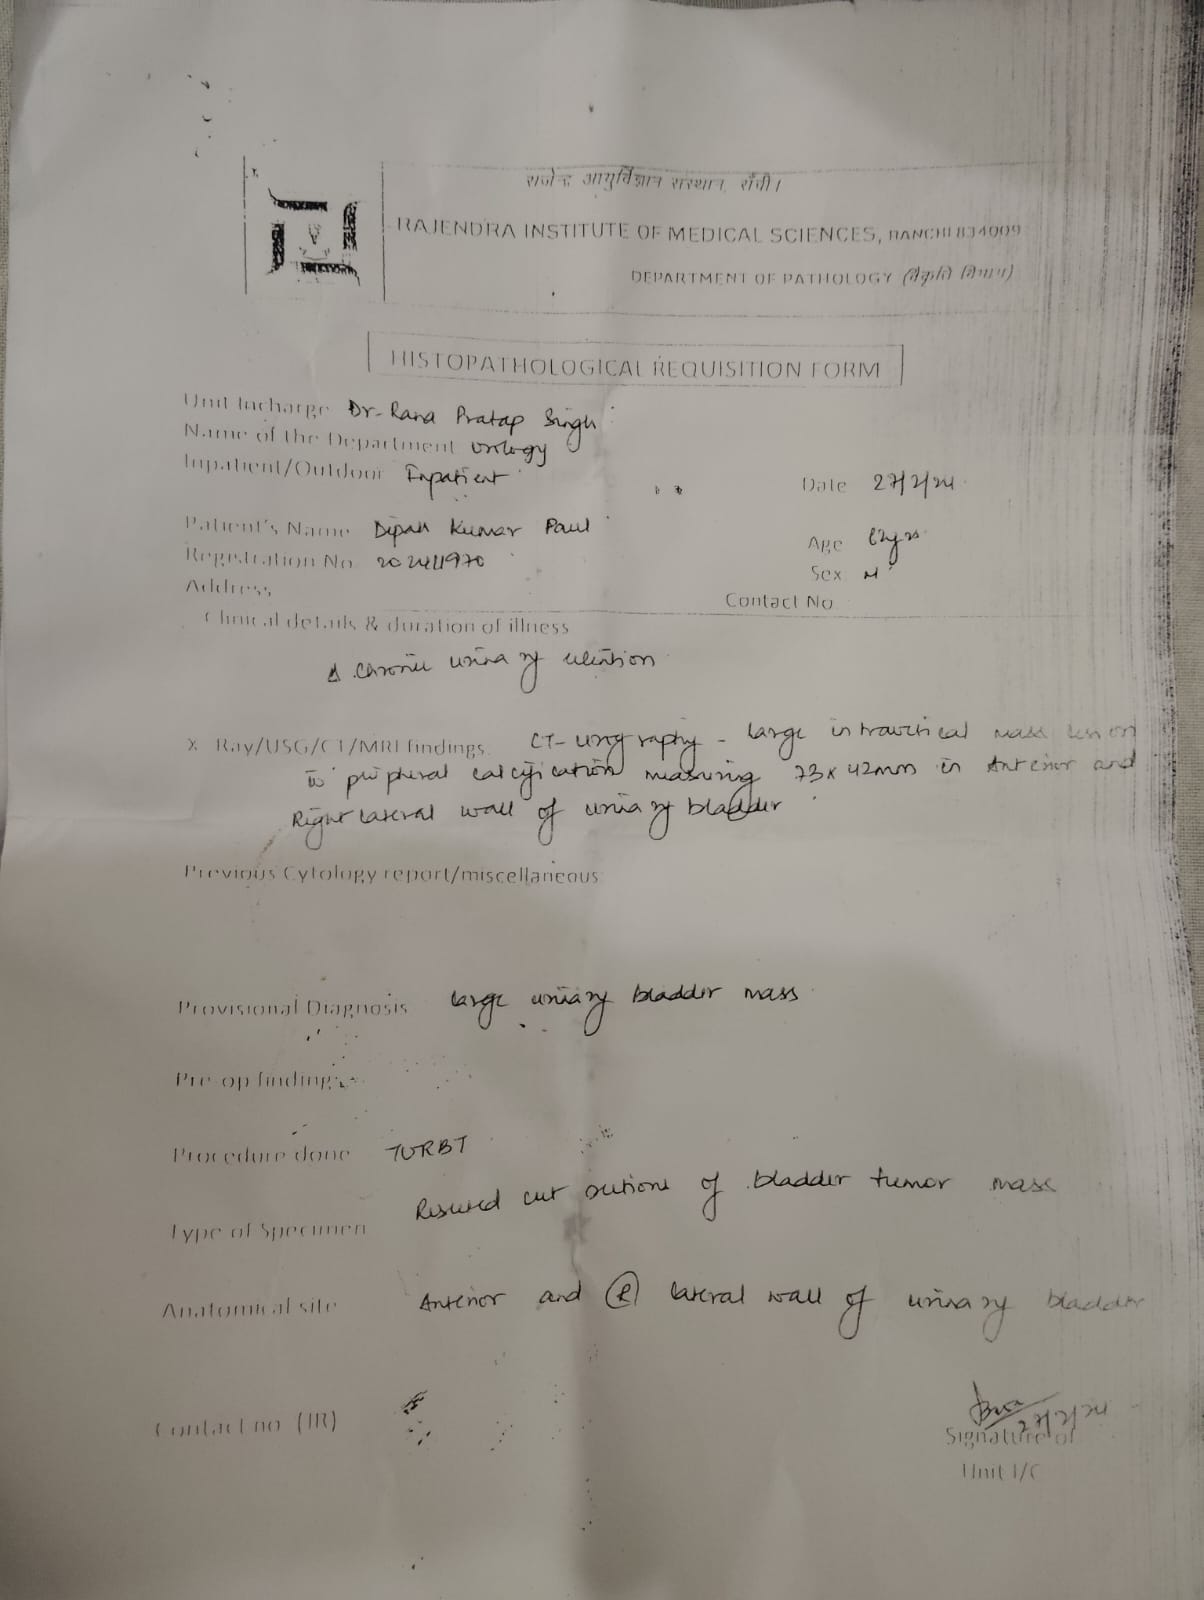 राजेन्द्र आयुर्विज्ञान संस्थान, राँची।
RAJENDRA INSTITUTE OF MEDICAL SCIENCES, RANCHI 834009
DEPARTMENT OF PATHOLOGY (विकृति विभाग)
HISTOPATHOLOGICAL REQUISITION FORM
Unit Incharge Dr. Rana Pratap Singh
Name of the Department urology
Inpatient/Outdoor Inpatient
Date 27/2/24
Patient's Name Dipak Kumar Paul
Age 62yrs
Regestration No
Sex M
Address
Contact No
Clinical details & duration of illness
Δ chronic urinary retention
X Ray/USG/CT/MRI findings. CT-urography - large intravesical mass lesion
peripheral calcification measuring 73x42mm in Anterior and
Right lateral wall of urinary bladder
Previous Cytology report/miscellaneous
Provisional Diagnosis large urinary bladder mass
Pre op findings
Procedure done TURBT
Type of Specimen Resected cut sections of bladder tumor mass
Anatomical site Anterior and Ⓡ lateral wall of urinary bladder
Contact no (JR)
27/2/24
Signature of
Unit I/C